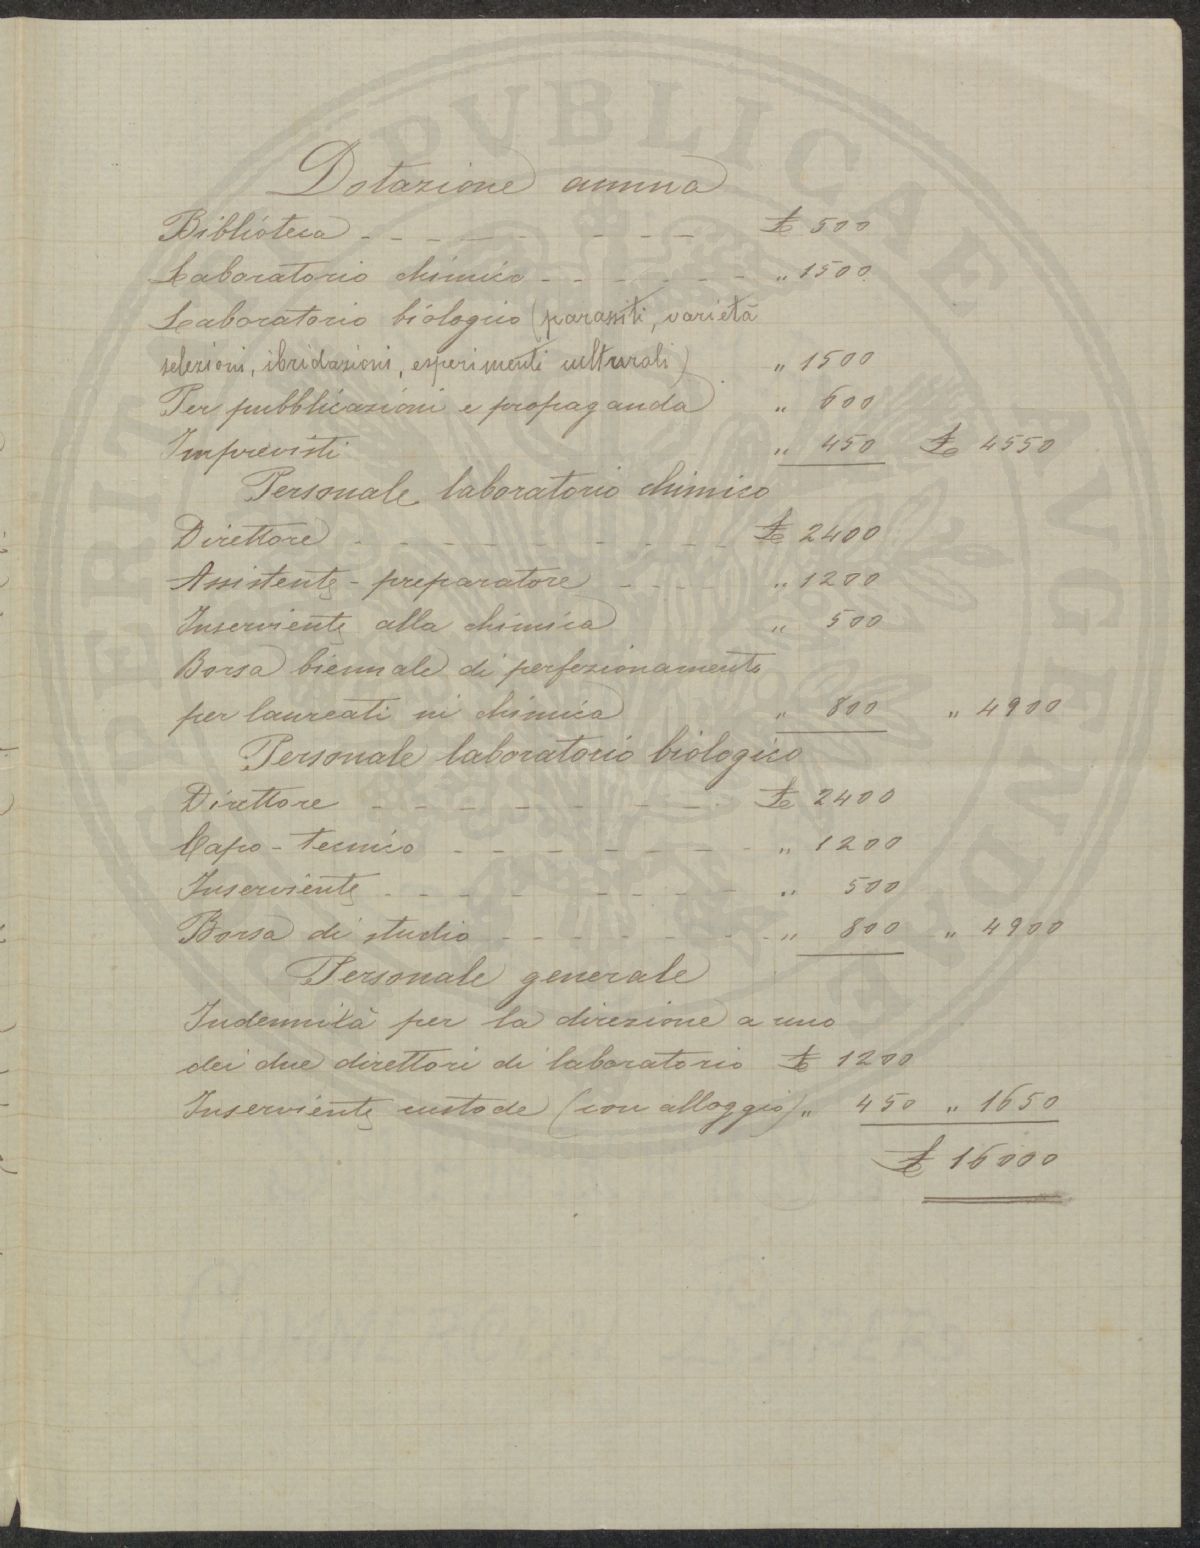 Dotazione annua
Biblioteca - - - - - - - - - - £ 500
Laboratorio chimico - - - - - - - " 1500
Laboratorio biologico (parassiti, varietà
selezioni, ibridazioni, esperimenti culturali) " 1500
Per pubblicazioni e propaganda " 600
Imprevisti " 450 £ 4550
Personale laboratorio chimico
Direttore - - - - - - - - - - - £ 2400
Assistente - preparatore - - - - " 1200
Inserviente alla chimica " 500
Borsa biennale di perfezionamento
per laureati in chimica " 800 " 4900
Personale laboratorio biologico
Direttore - - - - - - - - - - £ 2400
Capo - tecnico - - - - - - - - - " 1200
Inserviente - - - - - - - - - - " 500
Borsa di studio - - - - - - - - - " 800 " 4900
Personale generale
Indennità per la direzione a uno
dei due direttori di laboratorio £ 1200
Inserviente custode (con alloggio) " 450 " 1650
£ 16000